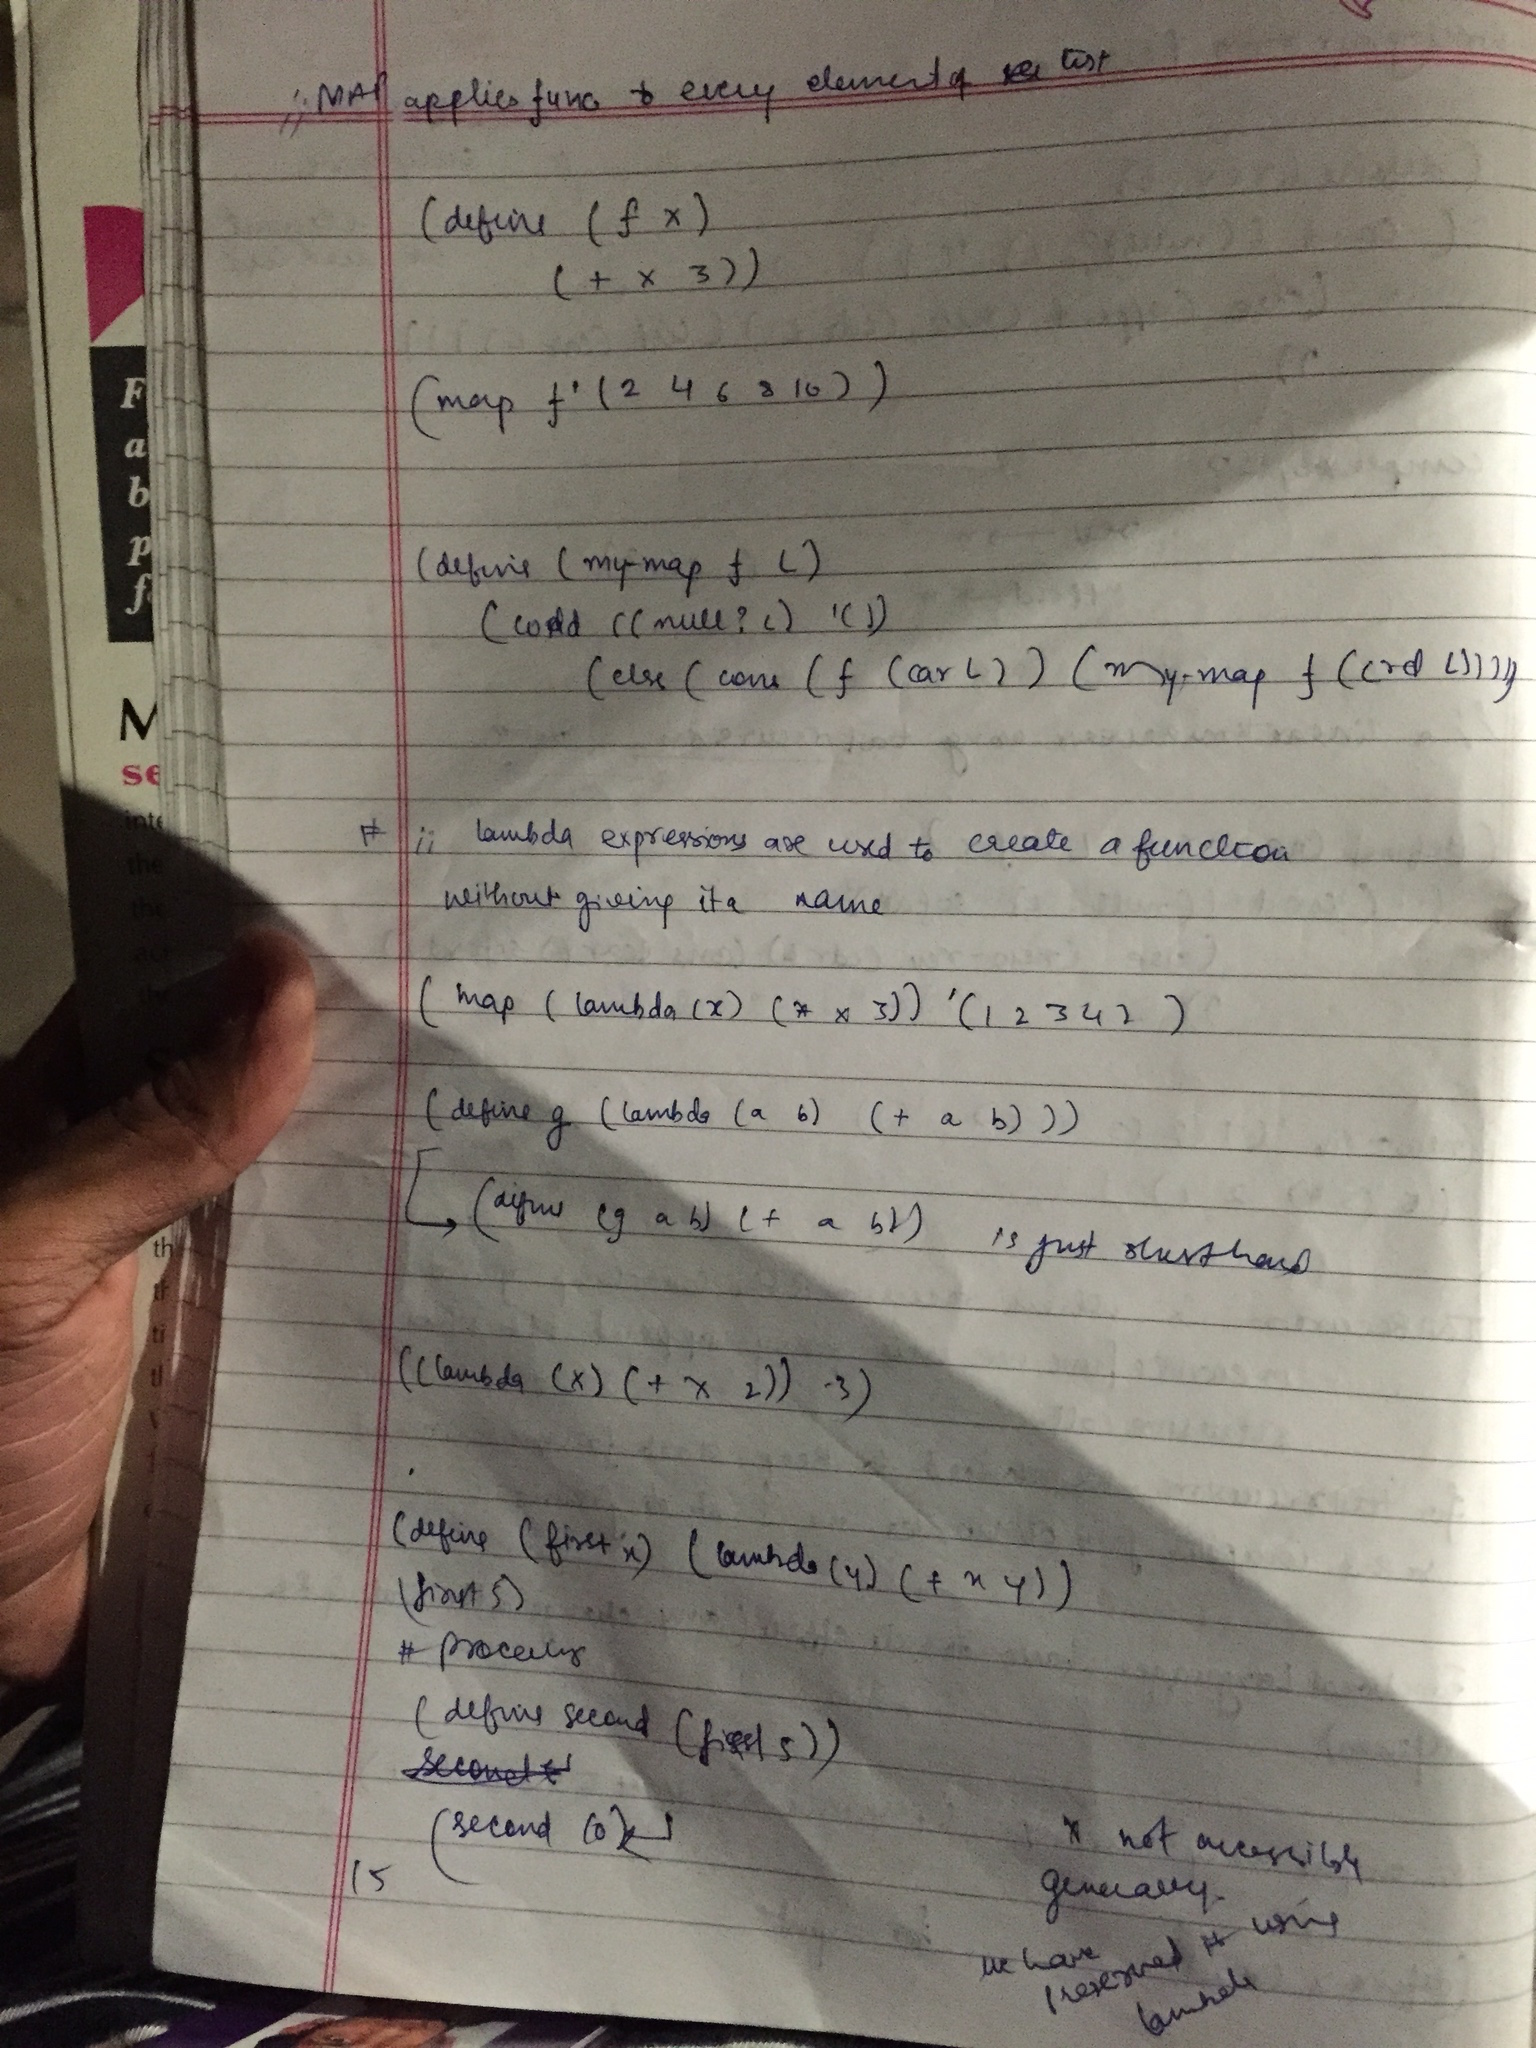 ;; MAP applies func to every element of list
(define (f x)
(+ x 3))
(map f '(2 4 6 8 10))
(define (my-map f L)
(cond ((null? L) '())
(else (cons (f (car L)) (my-map f (crd L)))))
# ;; lambda expressions are used to create a function
without giving it a name
(map (lambda (x) (* x 3)) '(1 2 3 4 2 )
(define g (lambda (a b) (+ a b)))
(define (g a b) (+ a b)) is just shorthand
((lambda (x) (+ x 2)) 3)
(define (first x) (lambda (y) (+ x y))
(first 5)
# procedure
(define second (first 5))
(second 10)
15
x not accessible
generally.
we have
preserved it using
lambda
F
a
b
p
f
M
se
inte
the
the
th